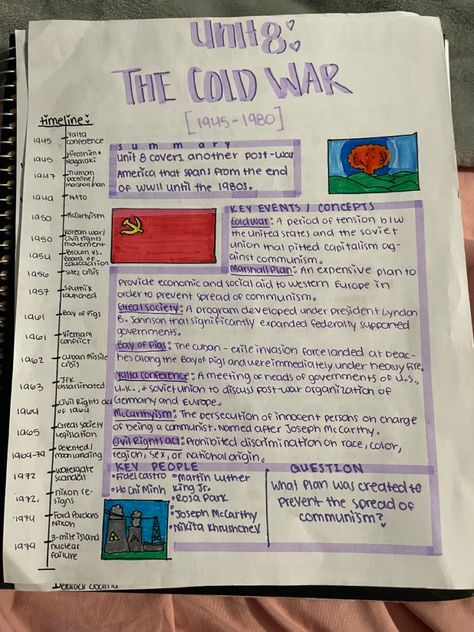 Unit 8:
THE COLD WAR
[1945-1980]
timeline:
1945 Yalta conference
1945 Hiroshima + Nagasaki
1947 Truman doctrine/ Marshall Plan
NATO
1950 McCarthyism
1950 Korean war/ civil rights movement
1954 Brown vs. Board of education
1956 Suez crisis
1957 Sputnik launched
1961 Bay of Pigs
1961 Vietnam conflict
1962 Cuban missile crisis
1963 JFK assassinated
1964 Civil Rights Act
1965 Great society legislation
1969-79 Detente/ moon landing
1972 Watergate scandal
Nixon resigns
1974 Ford Pardons Nixon
1979 3-mile island nuclear failure
summary
Unit 8 covers another post-war
America that spans from the end
of WWII until the 1980s.
KEY EVENTS / CONCEPTS
Cold War: A period of tension b/w
the United States and the Soviet
union that pitted capitalism ag-
ainst communism.
Marshall Plan: An expensive plan to
provide economic and social aid to western Europe in
order to prevent spread of communism.
Great Society: A program developed under president Lyndon
B. Johnson that significantly expanded federally supported
governments.
Bay of Pigs: The Cuban-exile invasion force landed at beac-
hes along the Bay of Pigs and were immediately under heavy fire.
Yalta Conference: A meeting of heads of governments of U.S.,
U.K., + Soviet union to discuss post-war organization of
Germany and Europe.
McCarthyism: The persecution of innocent persons on charge
of being a communist. Named after Joseph McCarthy.
Civil Rights Act: Prohibited discrimination on race, color,
region, sex, or national origin.
KEY PEOPLE
• Fidel Castro
• Ho Chi Minh
• Martin Luther
King Jr.
• Rosa Park
• Joseph McCarthy
• Nikita Khrushchev
QUESTION
What plan was created to
prevent the spread of
communism?